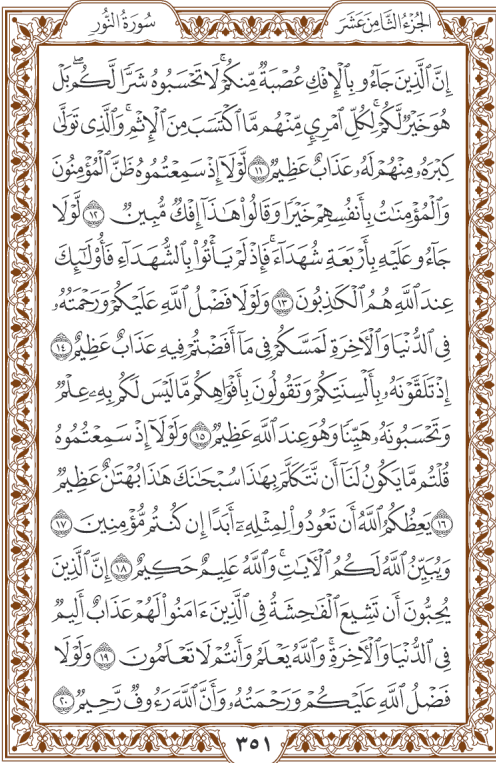 الجُزْءُ الثَّامِنَ عَشَرَ
سُورَةُ النُّور
إِنَّ ٱلَّذِينَ جَآءُو بِٱلْإِفْكِ عُصْبَةٌ مِّنكُمْ ۚ لَا تَحْسَبُوهُ شَرًّا لَّكُم ۖ بَلْ
هُوَ خَيْرٌ لَّكُمْ ۚ لِكُلِّ ٱمْرِئٍ مِّنْهُم مَّا ٱكْتَسَبَ مِنَ ٱلْإِثْمِ ۚ وَٱلَّذِى تَوَلَّىٰ
كِبْرَهُۥ مِنْهُمْ لَهُۥ عَذَابٌ عَظِيمٌ ١١ لَّوْلَآ إِذْ سَمِعْتُمُوهُ ظَنَّ ٱلْمُؤْمِنُونَ
وَٱلْمُؤْمِنَٰتُ بِأَنفُسِهِمْ خَيْرًا وَقَالُوا۟ هَٰذَآ إِفْكٌ مُّبِينٌ ١٢ لَّوْلَا
جَآءُو عَلَيْهِ بِأَرْبَعَةِ شُهَدَآءَ ۚ فَإِذْ لَمْ يَأْتُوا۟ بِٱلشُّهَدَآءِ فَأُو۟لَٰٓئِكَ
عِندَ ٱللَّهِ هُمُ ٱلْكَٰذِبُونَ ١٣ وَلَوْلَا فَضْلُ ٱللَّهِ عَلَيْكُمْ وَرَحْمَتُهُۥ
فِى ٱلدُّنْيَا وَٱلْءَاخِرَةِ لَمَسَّكُمْ فِى مَآ أَفَضْتُمْ فِيهِ عَذَابٌ عَظِيمٌ ١٤
إِذْ تَلَقَّوْنَهُۥ بِأَلْسِنَتِكُمْ وَتَقُولُونَ بِأَفْوَاهِكُم مَّا لَيْسَ لَكُم بِهِۦ عِلْمٌ
وَتَحْسَبُونَهُۥ هَيِّنًا وَهُوَ عِندَ ٱللَّهِ عَظِيمٌ ١٥ وَلَوْلَآ إِذْ سَمِعْتُمُوهُ
قُلْتُم مَّا يَكُونُ لَنَآ أَن نَّتَكَلَّمَ بِهَٰذَا سُبْحَٰنَكَ هَٰذَا بُهْتَٰنٌ عَظِيمٌ
١٦ يَعِظُكُمُ ٱللَّهُ أَن تَعُودُوا۟ لِمِثْلِهِۦٓ أَبَدًا إِن كُنتُم مُّؤْمِنِينَ ١٧
وَيُبَيِّنُ ٱللَّهُ لَكُمُ ٱلْءَايَٰتِ ۚ وَٱللَّهُ عَلِيمٌ حَكِيمٌ ١٨ إِنَّ ٱلَّذِينَ
يُحِبُّونَ أَن تَشِيعَ ٱلْفَٰحِشَةُ فِى ٱلَّذِينَ ءَامَنُوا۟ لَهُمْ عَذَابٌ أَلِيمٌ
فِى ٱلدُّنْيَا وَٱلْءَاخِرَةِ ۚ وَٱللَّهُ يَعْلَمُ وَأَنتُمْ لَا تَعْلَمُونَ ١٩ وَلَوْلَا
فَضْلُ ٱللَّهِ عَلَيْكُمْ وَرَحْمَتُهُۥ وَأَنَّ ٱللَّهَ رَءُوفٌ رَّحِيمٌ ٢٠
٣٥١